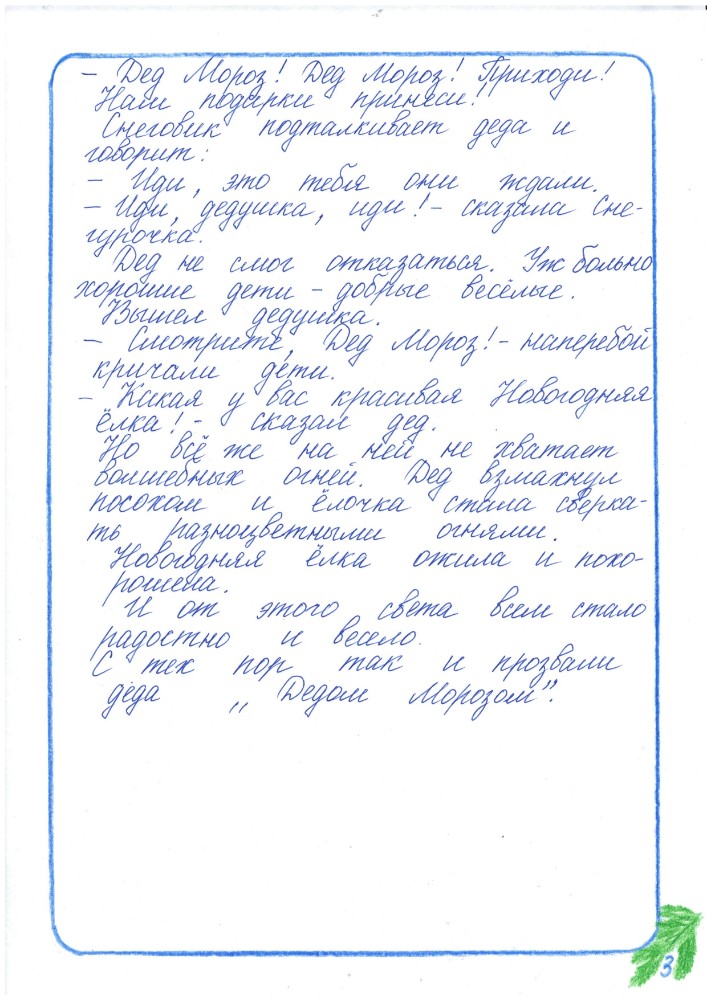 – Дед Мороз! Дед Мороз! Приходи!
Нам подарки принеси!
Снеговик подталкивает деда и
говорит:
– Иди, это тебя они ждали.
– Иди, дедушка, иди! – сказала Сне-
гурочка.
Дед не смог отказаться. Уж больно
хорошие дети – добрые весёлые.
Вышел дедушка.
– Смотрите, Дед Мороз! – наперебой
кричали дети.
– Какая у вас красивая Новогодняя
ёлка! – сказал дед.
Но всё же на ней не хватает
волшебных огней. Дед взмахнул
посохом и ёлочка стала сверка-
ть разноцветными огнями.
Новогодняя ёлка ожила и похо-
рошела.
И от этого света всем стало
радостно и весело.
С тех пор так и прозвали
деда „Дедом Морозом".
3